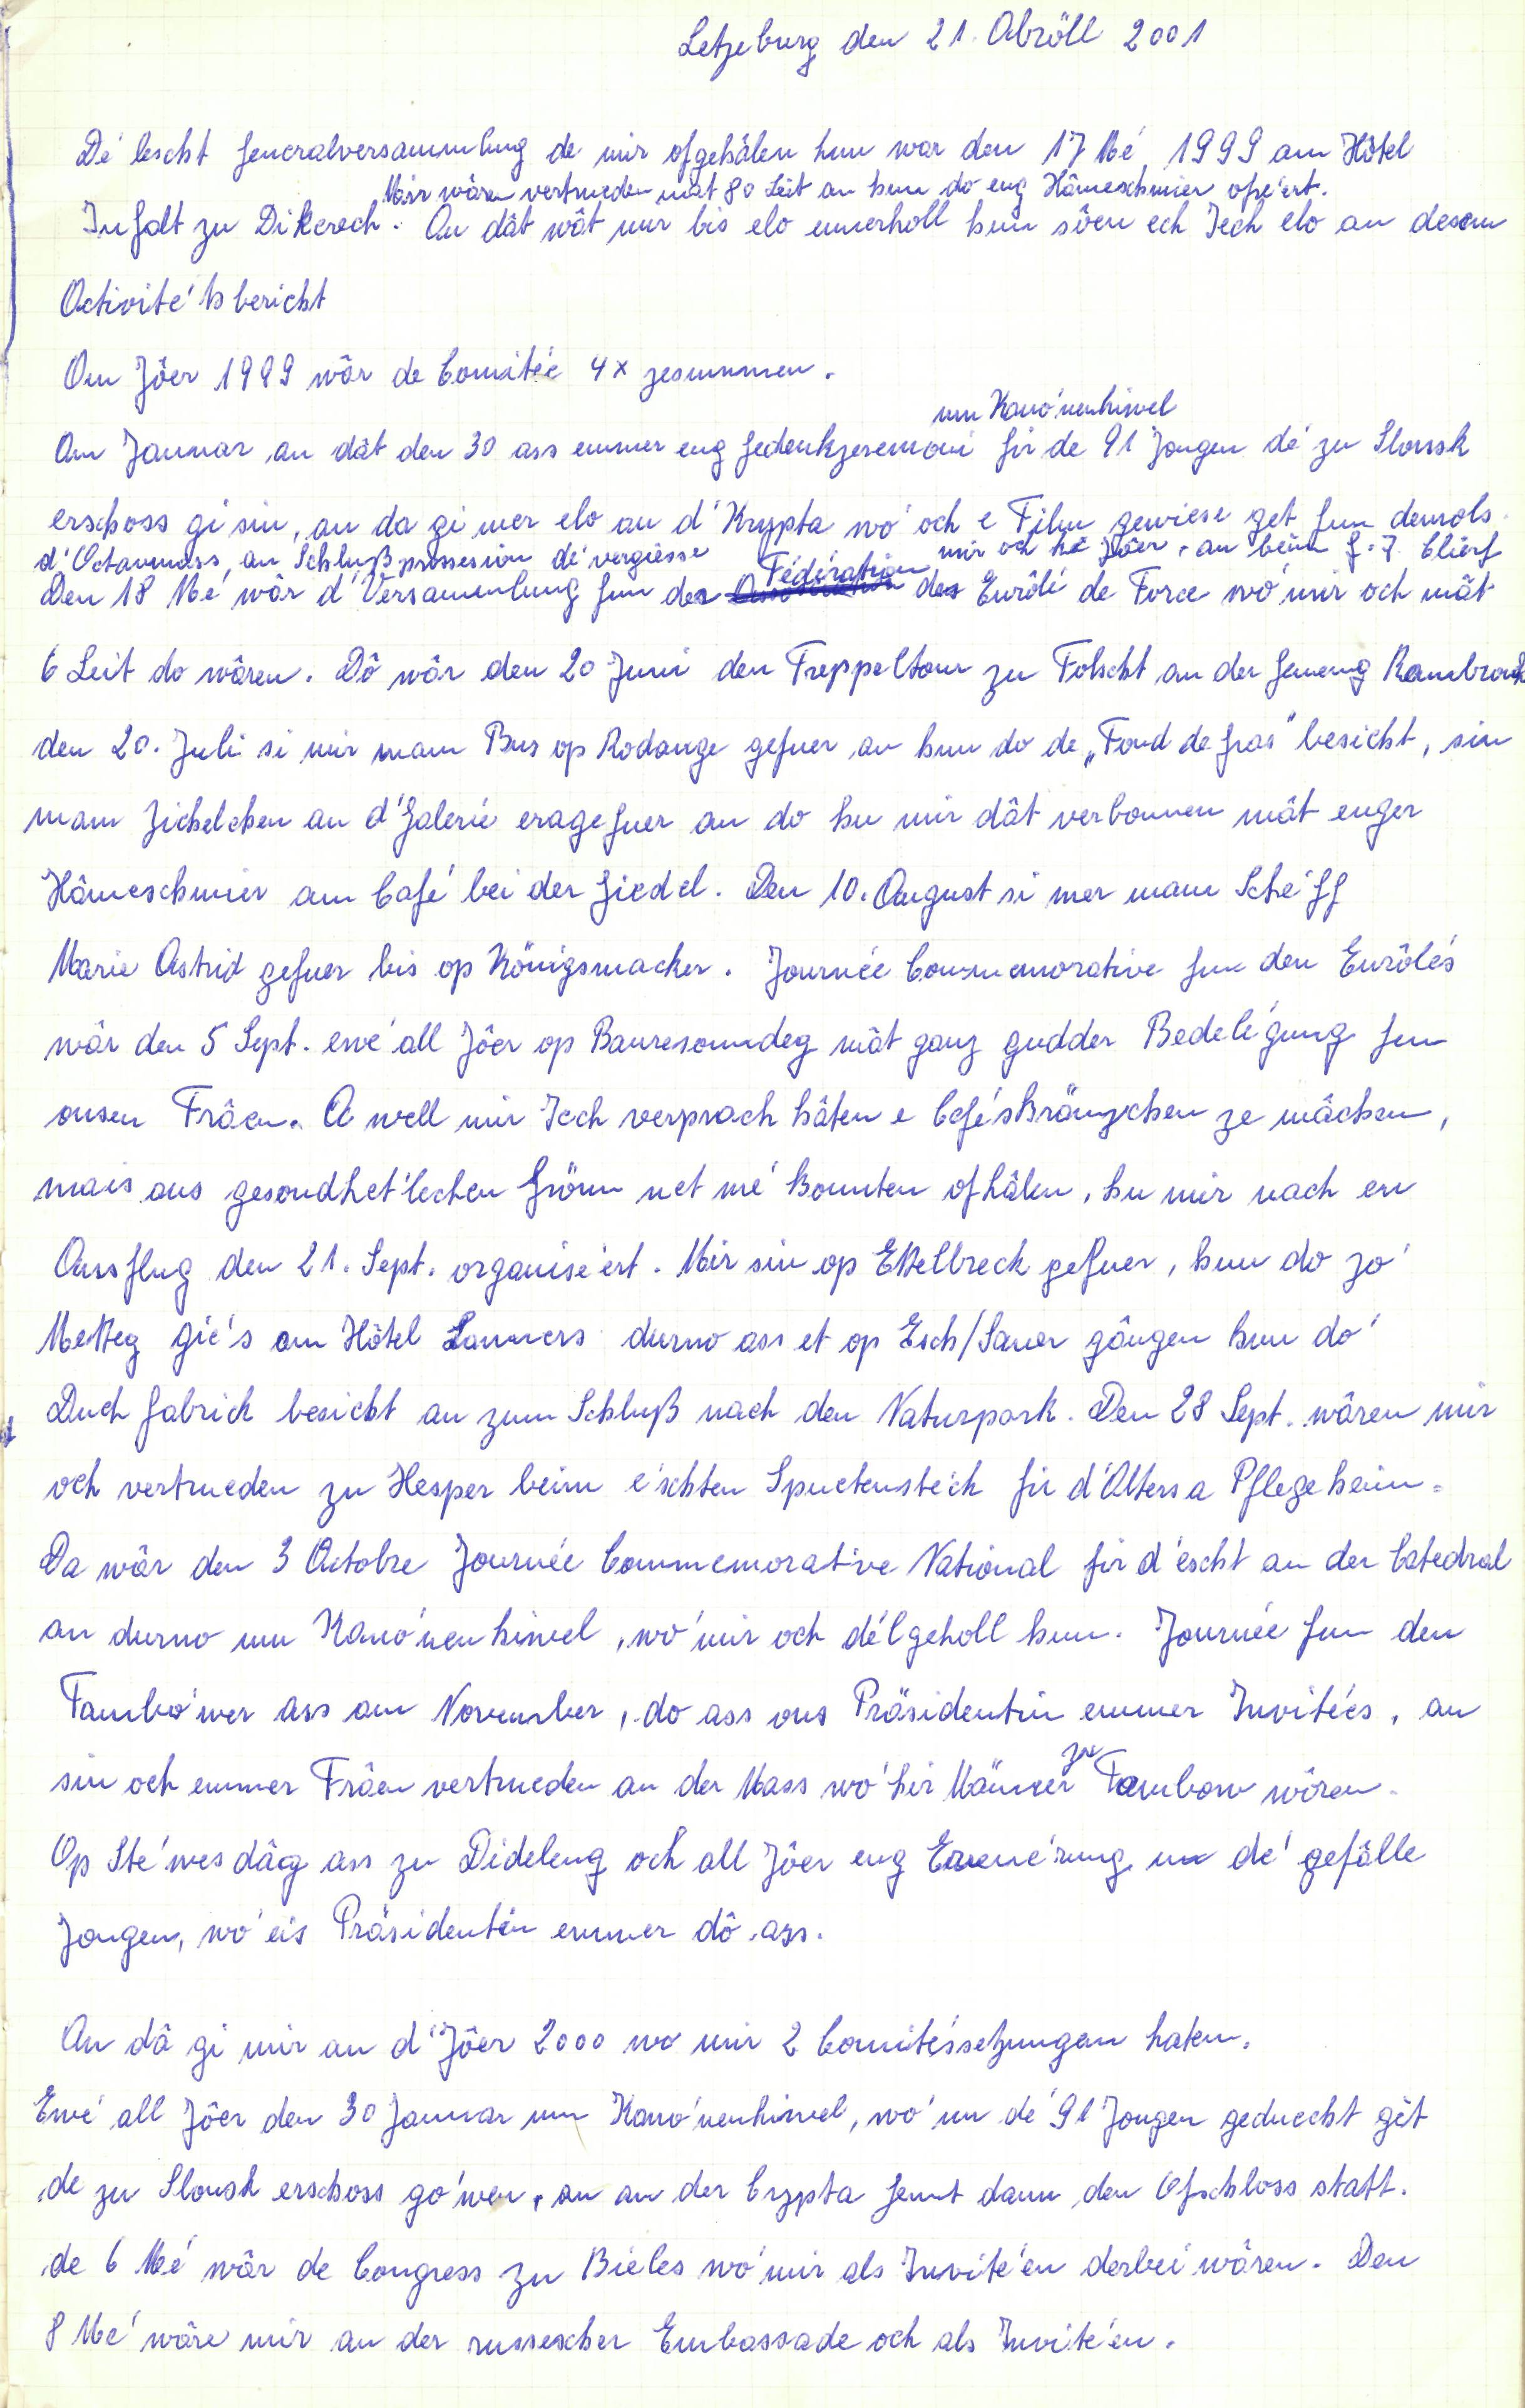 Letzeburg den 21. Abröll 2001
Dé lescht Generalversammlung de mir ofgehâlen hun war den 17 Mé 1999 am Hôtel
Mir wâren vertrueden mat 80 Leit an hun do eng Hâmeschmier oféiert.
Infalt zu Dikerech. An dât wât mir bis elo ennerholl hun sôen ech Iech elo an desem
Activité'tsbericht
Am Jôer 1999 wôr de Comitée 4x zesummen.
um Kano'nenhiwel
Am Januar an dât den 30 ass emmer eng Gedenkzeremoni fir de 91 Jongen dé zu Slonsk
erschoss gi sin, an da gi mer elo an d'Krypta wo' och e Film gewiese get fun demols.
d'Octavmass, an Schlußprossesion dé vergiesse mir och ké Jôer. an beim G.J. Clierf
Den 18 Mé wâr d'Versammlung fun der Fédération des Enrôlé de Force wo' mir och mât
6 Leit do wâren. Dô wâr den 20 Juni den Treppeltour zu Folscht an der Gemeng Rambrouch
den 20. Juli si mir mam Bus op Rodange gefuer an hun do de „Fond de Gras" besicht, sin
mam Zichelchen an d'Galerie eragefuer an do hu mir dât verbonnen mât enger
Hâmeschmier am Café bei der Giedel. Den 10. August si mer mam Schéff
Marie Astrid gefuer bis op Königsmacher. Journée Commemorative fun den Enrôlés
wâr den 5 Sept. ewé all Jôer op Bauresonndeg mât ganz gudder Bedelégung fun
onsen Frâen. A well mir Iech versprach hâten e Caféskränzchen ze mâchen,
mais aus gesondhet'lechen Grönn net mé konnten ofhâlen, hu mir nach en
Ausflug den 21. Sept. organiséiert. Mir sin op Ettelbreck gefuer, hun do zo'
Metteg giés am Hôtel Lanners durno ass et op Esch/Sauer gângen hun do'
Duch fabrick besicht an zum Schluß nach den Naturpark. Den 28 Sept. wâren mir
och vertrueden zu Hesper beim éischten Spuetensteich fir d'Alters a Pflegeheim.
Da wâr den 3 Octobre Journée Commemorative National fir d'éscht an der Catedral
an durno um Kano'nenhiwel, wo' mir och délgeholl hun. Journée fun den
Tambo'wer ass am November, do ass ons Präsidentin emmer Invitéés, an
sin och emmer Frâen vertrueden an der Mass wo' hir Männer zu Tambow wâren.
Op Sté'wesdâg ass zu Dideleng och all Jôer eng Erene'rung un dé gefâlle
Jongen, wo' eis Präsidentin emmer dô ass.
An dâ gi mir an d'Jôer 2000 wo mir 2 Comitéssetzungen haten.
Ewé all Jôer den 30 Januar um Kano'nenhiwel, wo' un dé 91 Jongen geduecht gët
de zu Slonsk erschoss go'wen, an an der Crypta fennt dann den Ofschloss statt.
de 6 Mé wâr de Congress zu Bieles wo' mir als Invité'en derbei wâren. Den
8 Mé wâre mir an der russescher Embassade och als Invité'en.